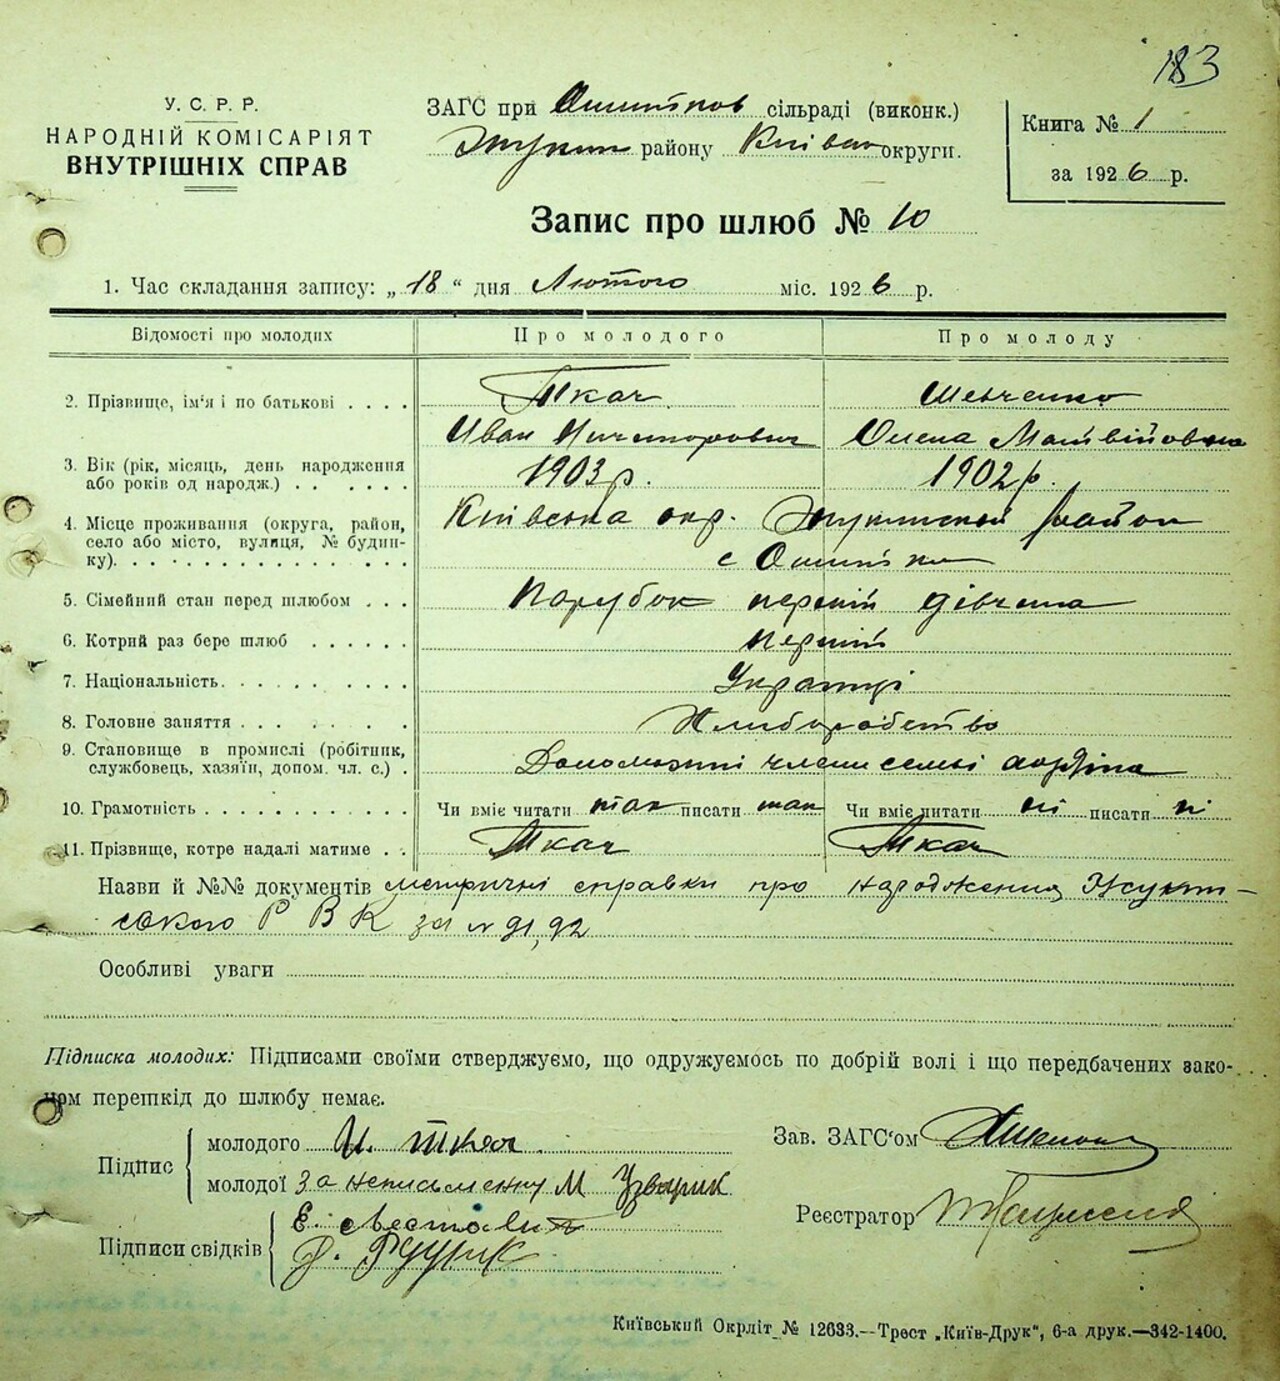 183
У. С. Р. Р.
НАРОДНІЙ КОМІСАРІЯТ
ВНУТРІШНІХ СПРАВ
ЗАГС при Ошитков сільраді (виконк.)
Жукин району Київськ округи.
Книга № 1
за 1926 р.
Запис про шлюб № 10
1. Час складання запису: „ 18 “ дня Лютого міс. 1926 р.
Відомості про молодих Про молодого Про молоду
2. Прізвище, ім'я і по батькові . . . . Ткач Шевченко
Иван Ничипорович Олена Матвійовна
3. Вік (рік, місяць, день народження
або років од народж.) . . . . . . 1903 р. 1902 р.
4. Місце проживання (округа, район,
село або місто, вулиця, № будин-
ку). Київська окр. Жукинский район
с Ошитки
5. Сімейний стан перед шлюбом . . . Парубок перший дівчина
6. Котрий раз бере шлюб . . . . . . перший
7. Національність. . . . . . . . . . Українці
8. Головне заняття . . . . . . . . Хлиборобство
9. Становище в промислі (робітник,
службовець, хазяїн, допом. чл. с.) . Допоможні члени семьі
10. Грамотність . . . . . . . . . . . Чи вміє читати так писати так Чи вміє читати ні писати ні
11. Прізвище, котре надалі матиме . . Ткач Ткач
Назви й №№ документів метричні справки про народження Жукин-
ського Р В К за № 91, 92
Особливі уваги
Підписка молодих: Підписами своїми стверджуємо, що одружуємось по добрій волі і що передбачених зако-
ном перешкід до шлюбу немає.
Підпис
молодого И. Ткач
молодої За неписьменну М Узварик
Зав. ЗАГС'ом
Реєстратор
Підписи свідків
Е.
Київський Окрліт № 12633.—Трест „Київ-Друк“, 6-а друк.—342-1400.